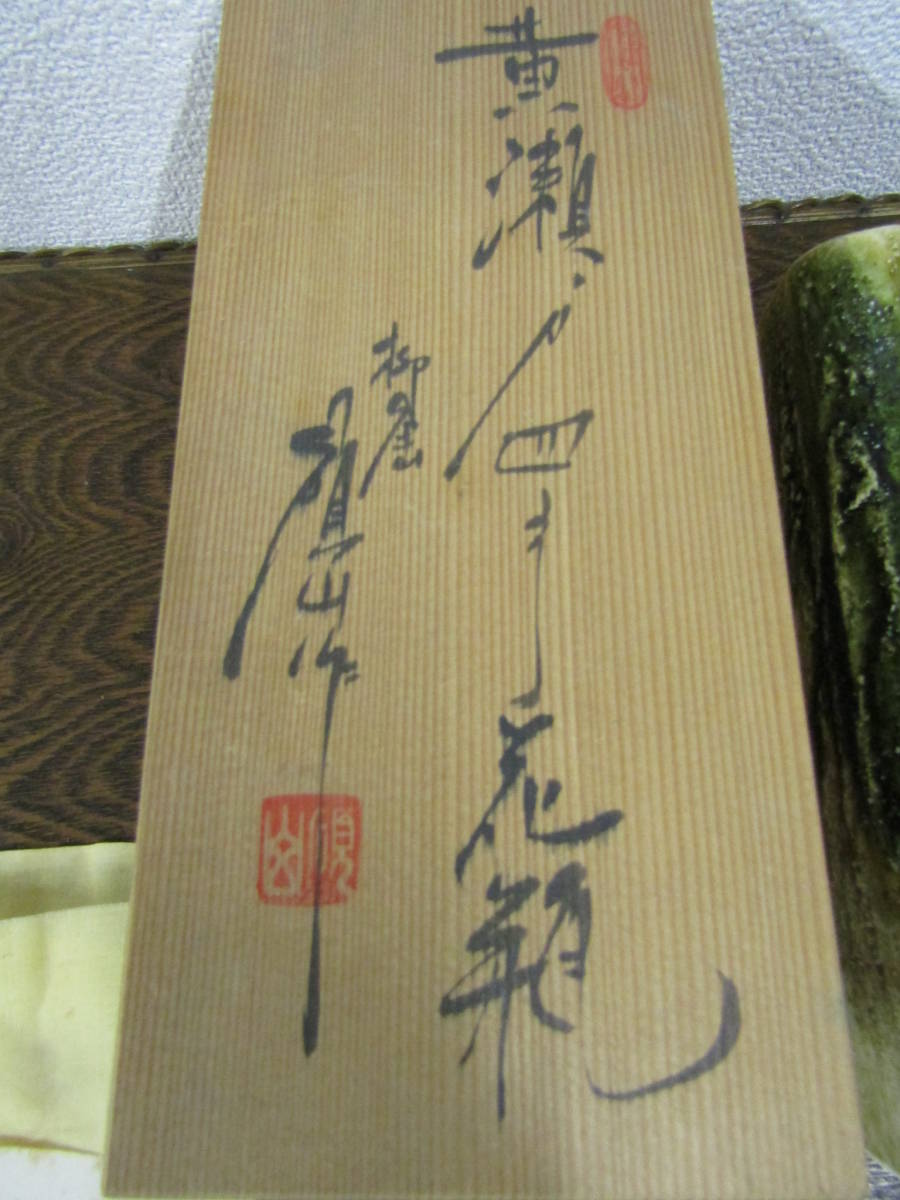 黄瀬戸四方花瓶
柳窯
山作